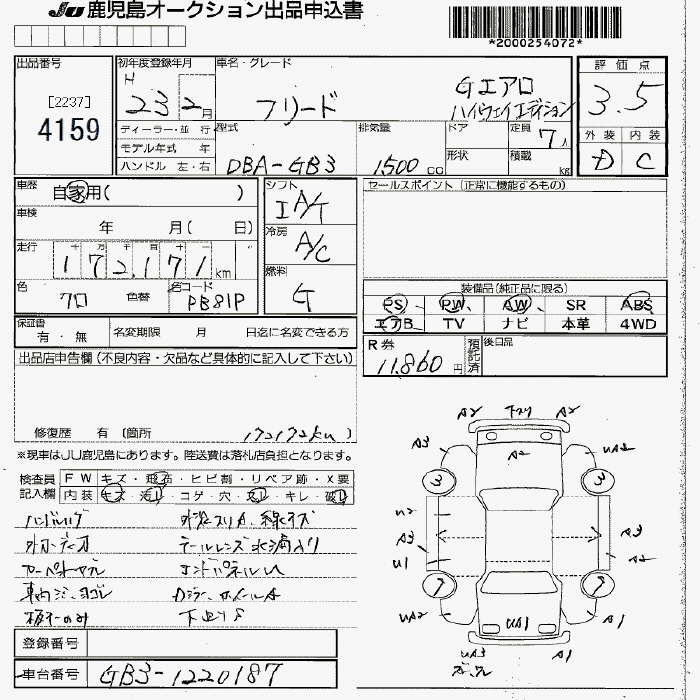 JU 鹿児島オークション出品申込書
*2000254072*
出品番号
[2237]
4159
初年度登録年月
H 23 2月
車名・グレード
フリード
Gエアロ
ハイウェイエディション
評価点
3.5
外装 内装
D C
ディーラー・並行
モデル年式 年
ハンドル 左・右
型式
DBA-GB3
排気量
1,500 cc
ドア
形状
定員
7人
積載
kg
車歴
自家用( )
車検
年 月( 日)
走行
十 万 千 百 十 一
172,171km
色
クロ
色替
色コード
PB81P
シフト
IA/T
冷房
A/C
燃料
G
セールスポイント (正常に機能するもの)
装備品(純正品に限る)
PS PW AW SR ABS
エアB TV ナビ 本革 4WD
保証書
有・無
名変期限 月 日迄に名変できる方
R券
11,860円
預託済
後日品
出品店申告欄(不良内容・欠品など具体的に記入して下さい)
修復歴 有 (箇所 172172km)
※現車はJU鹿児島にあります。陸送費は落札店負担となります。
検査員記入欄
FW キズ・飛石・ヒビ割・リペア跡・X要
内装 キズ・汚レ・コゲ・穴・スレ・キレ・破レ
ハンドルハゲ
テールレンズ水滴入り
エンドパネルU
下廻りS
登録番号
車台番号
GB3-1220187
A2 A2
A3 A2 UA2
3 3
U2
A3 A3
U1 A2
7 7
UA2 UA1 A1
UA3 A1